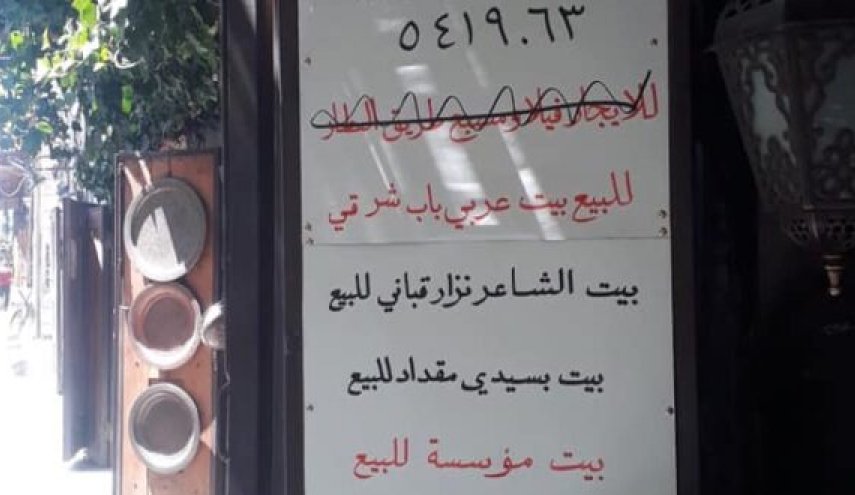 ٥٤١٩٠٦٣
للايجار فيلا وسبع طريق المطار
للبيع بيت عربي باب شرقي
بيت الشاعر نزار قباني للبيع
بيت بسيدي مقداد للبيع
بيت مؤسسة للبيع